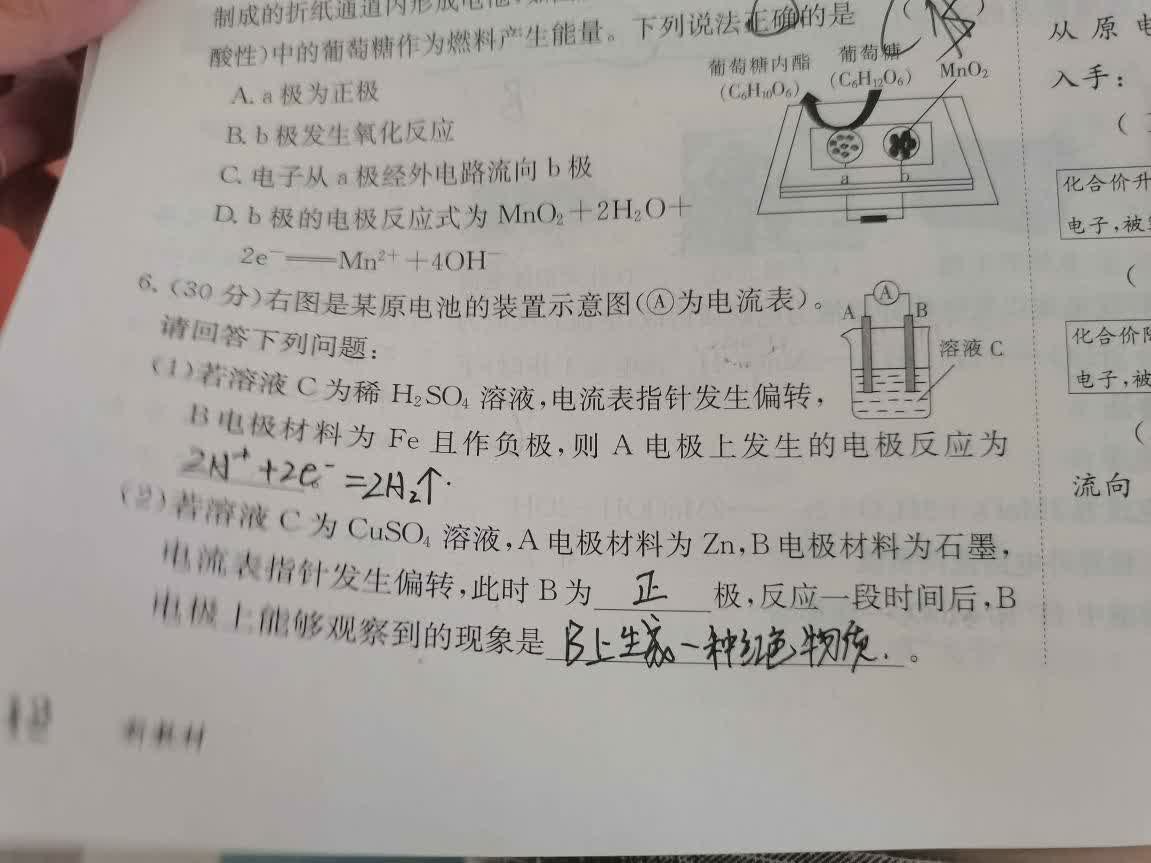 制成的折纸通道内形成电池
酸性)中的葡萄糖作为燃料产生能量。下列说法正确的是
A. a 极为正极
B. b 极发生氧化反应
C. 电子从 a 极经外电路流向 b 极
D. b 极的电极反应式为 MnO₂+2H₂O+
2e⁻══Mn²⁺+4OH⁻
葡萄糖内酯
(C₆H₁₀O₆)
葡萄糖
(C₆H₁₂O₆)
MnO₂
a
b
6. (30 分)右图是某原电池的装置示意图(Ⓐ为电流表)。
请回答下列问题:
A
A
B
溶液 C
(1)若溶液 C 为稀 H₂SO₄ 溶液,电流表指针发生偏转,
B 电极材料为 Fe 且作负极,则 A 电极上发生的电极反应为
2H⁺+2e⁻=2H₂↑.
(2)若溶液 C 为 CuSO₄ 溶液,A 电极材料为 Zn,B 电极材料为石墨,
电流表指针发生偏转,此时 B 为 正 极,反应一段时间后,B
电极上能够观察到的现象是 B上生成一种红色物质. 。
新教材
从 原 电
入手:
(
化合价升
电子,被
(
化合价
电子,被
(
流向